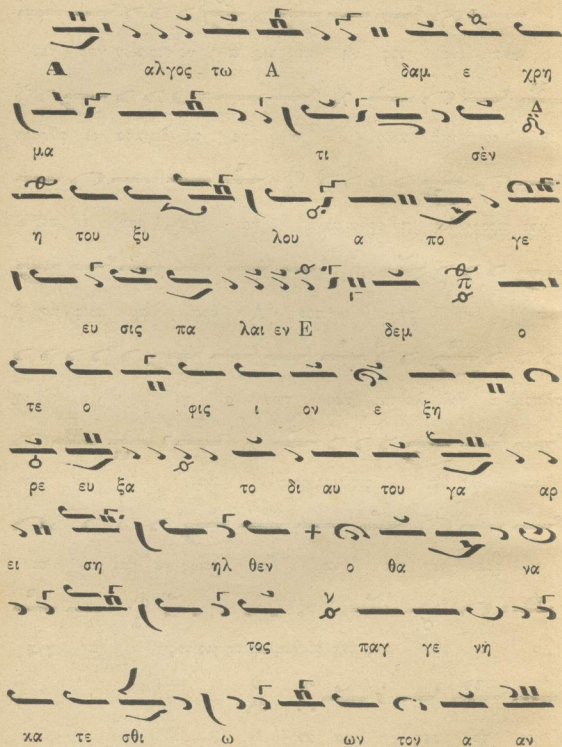 Α αλγος τω Α δαμ ε χρη
μα τι σὲν Δ
η του ξυ λου α πο γε
ευ σις πα λαι εν Ε δεμ π ο
τε ο φις ι ον ε ξη
ρε ευ ξα το δι αυ του γα αρ
ει ση ηλ θεν ο θα να
τος ν παγ γε νὴ
κα τε σθι ω ων τον α αν